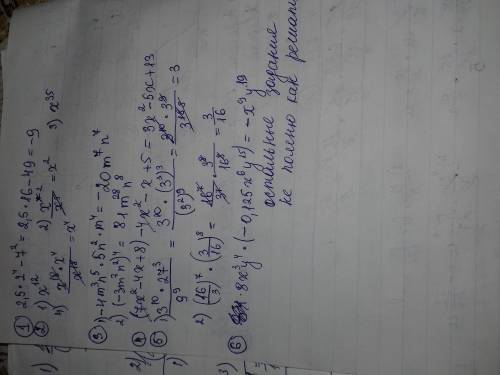 ① 2,5 · 2⁴ - 7² = 2,5 · 16 - 49 = -9
② 1) x¹² 2) x² 3) x³⁵
4) = x⁴
③ 1) -4m³n⁵ · 5n² · m⁴ = -20m⁷n⁷
2) (-3m⁷n²)⁴ = 81m²⁸n⁸
④ (7x² - 4x + 8) - 4x² - x + 5 = 3x² - 5x + 13
⑤ 1) 3¹⁰ · 27³ / 9⁹ = 3¹⁰ · (3³)³ / (3²)⁹ = 3¹⁰ · 3⁹ / 3¹⁸ = 3
2) (16/3)⁷ · (3/16)⁸ = 16⁷/3⁷ · 3⁸/16⁸ = 3/16
⑥ 8x³y⁴ · (-0,125x⁶y¹⁵) = -x⁹y¹⁹
остальные задания
не помню как решать